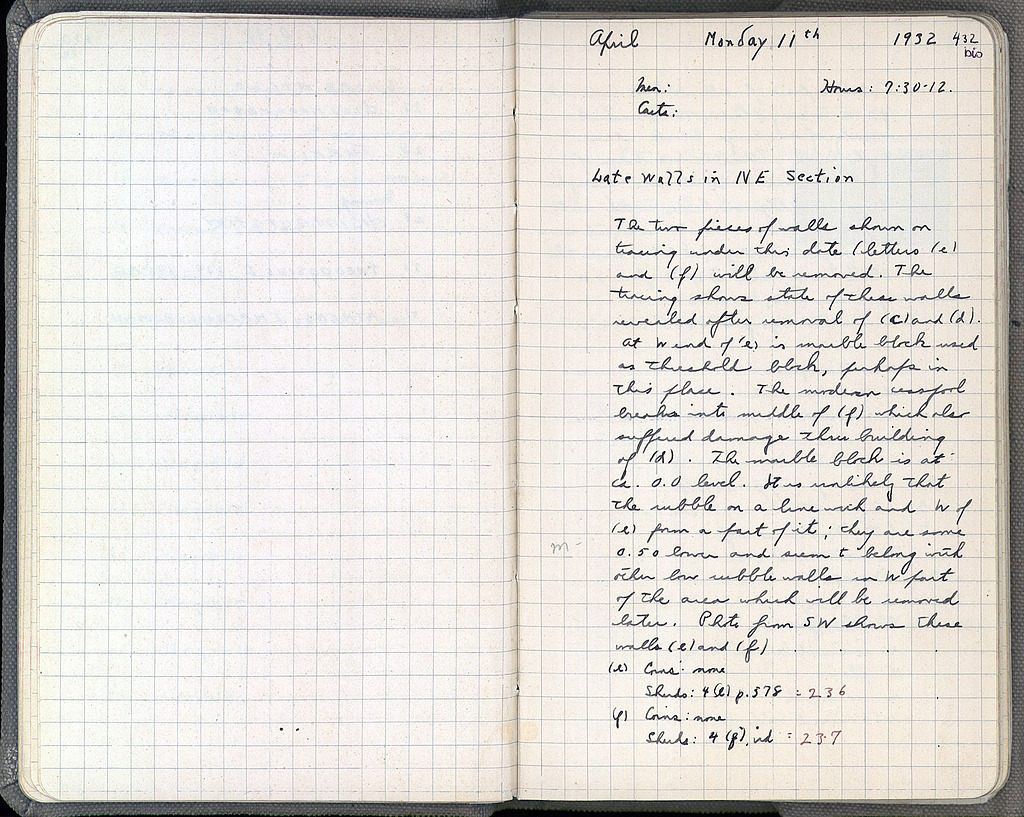 April Monday 11th 1932 432
bis
Men: Hours: 7:30-12.
Carts:
Late Walls in NE Section
The two pieces of walls shown on
tracing under this date (letters (e)
and (f) will be removed. The
tracing shows state of these walls
revealed after removal of (c) and (d).
At W end of (e) is marble block used
as threshold block, perhaps in
this place. The modern cesspool
breaks into middle of (f) which also
suffered damage thru building
of (d). The marble block is at
ca. 0.0 level. It is unlikely that
the rubble on a line with and W of
(e) form a part of it; they are some
0.50 lower and seem to belong with
other low rubble walls in W part
of the area which will be removed
later. Photo from SW shows these
walls (e) and (f)
(e) Coins: none
Sherds: 4(e) p. 578 = 236
(f) Coins: none
Sherds: 4 (f), = 237